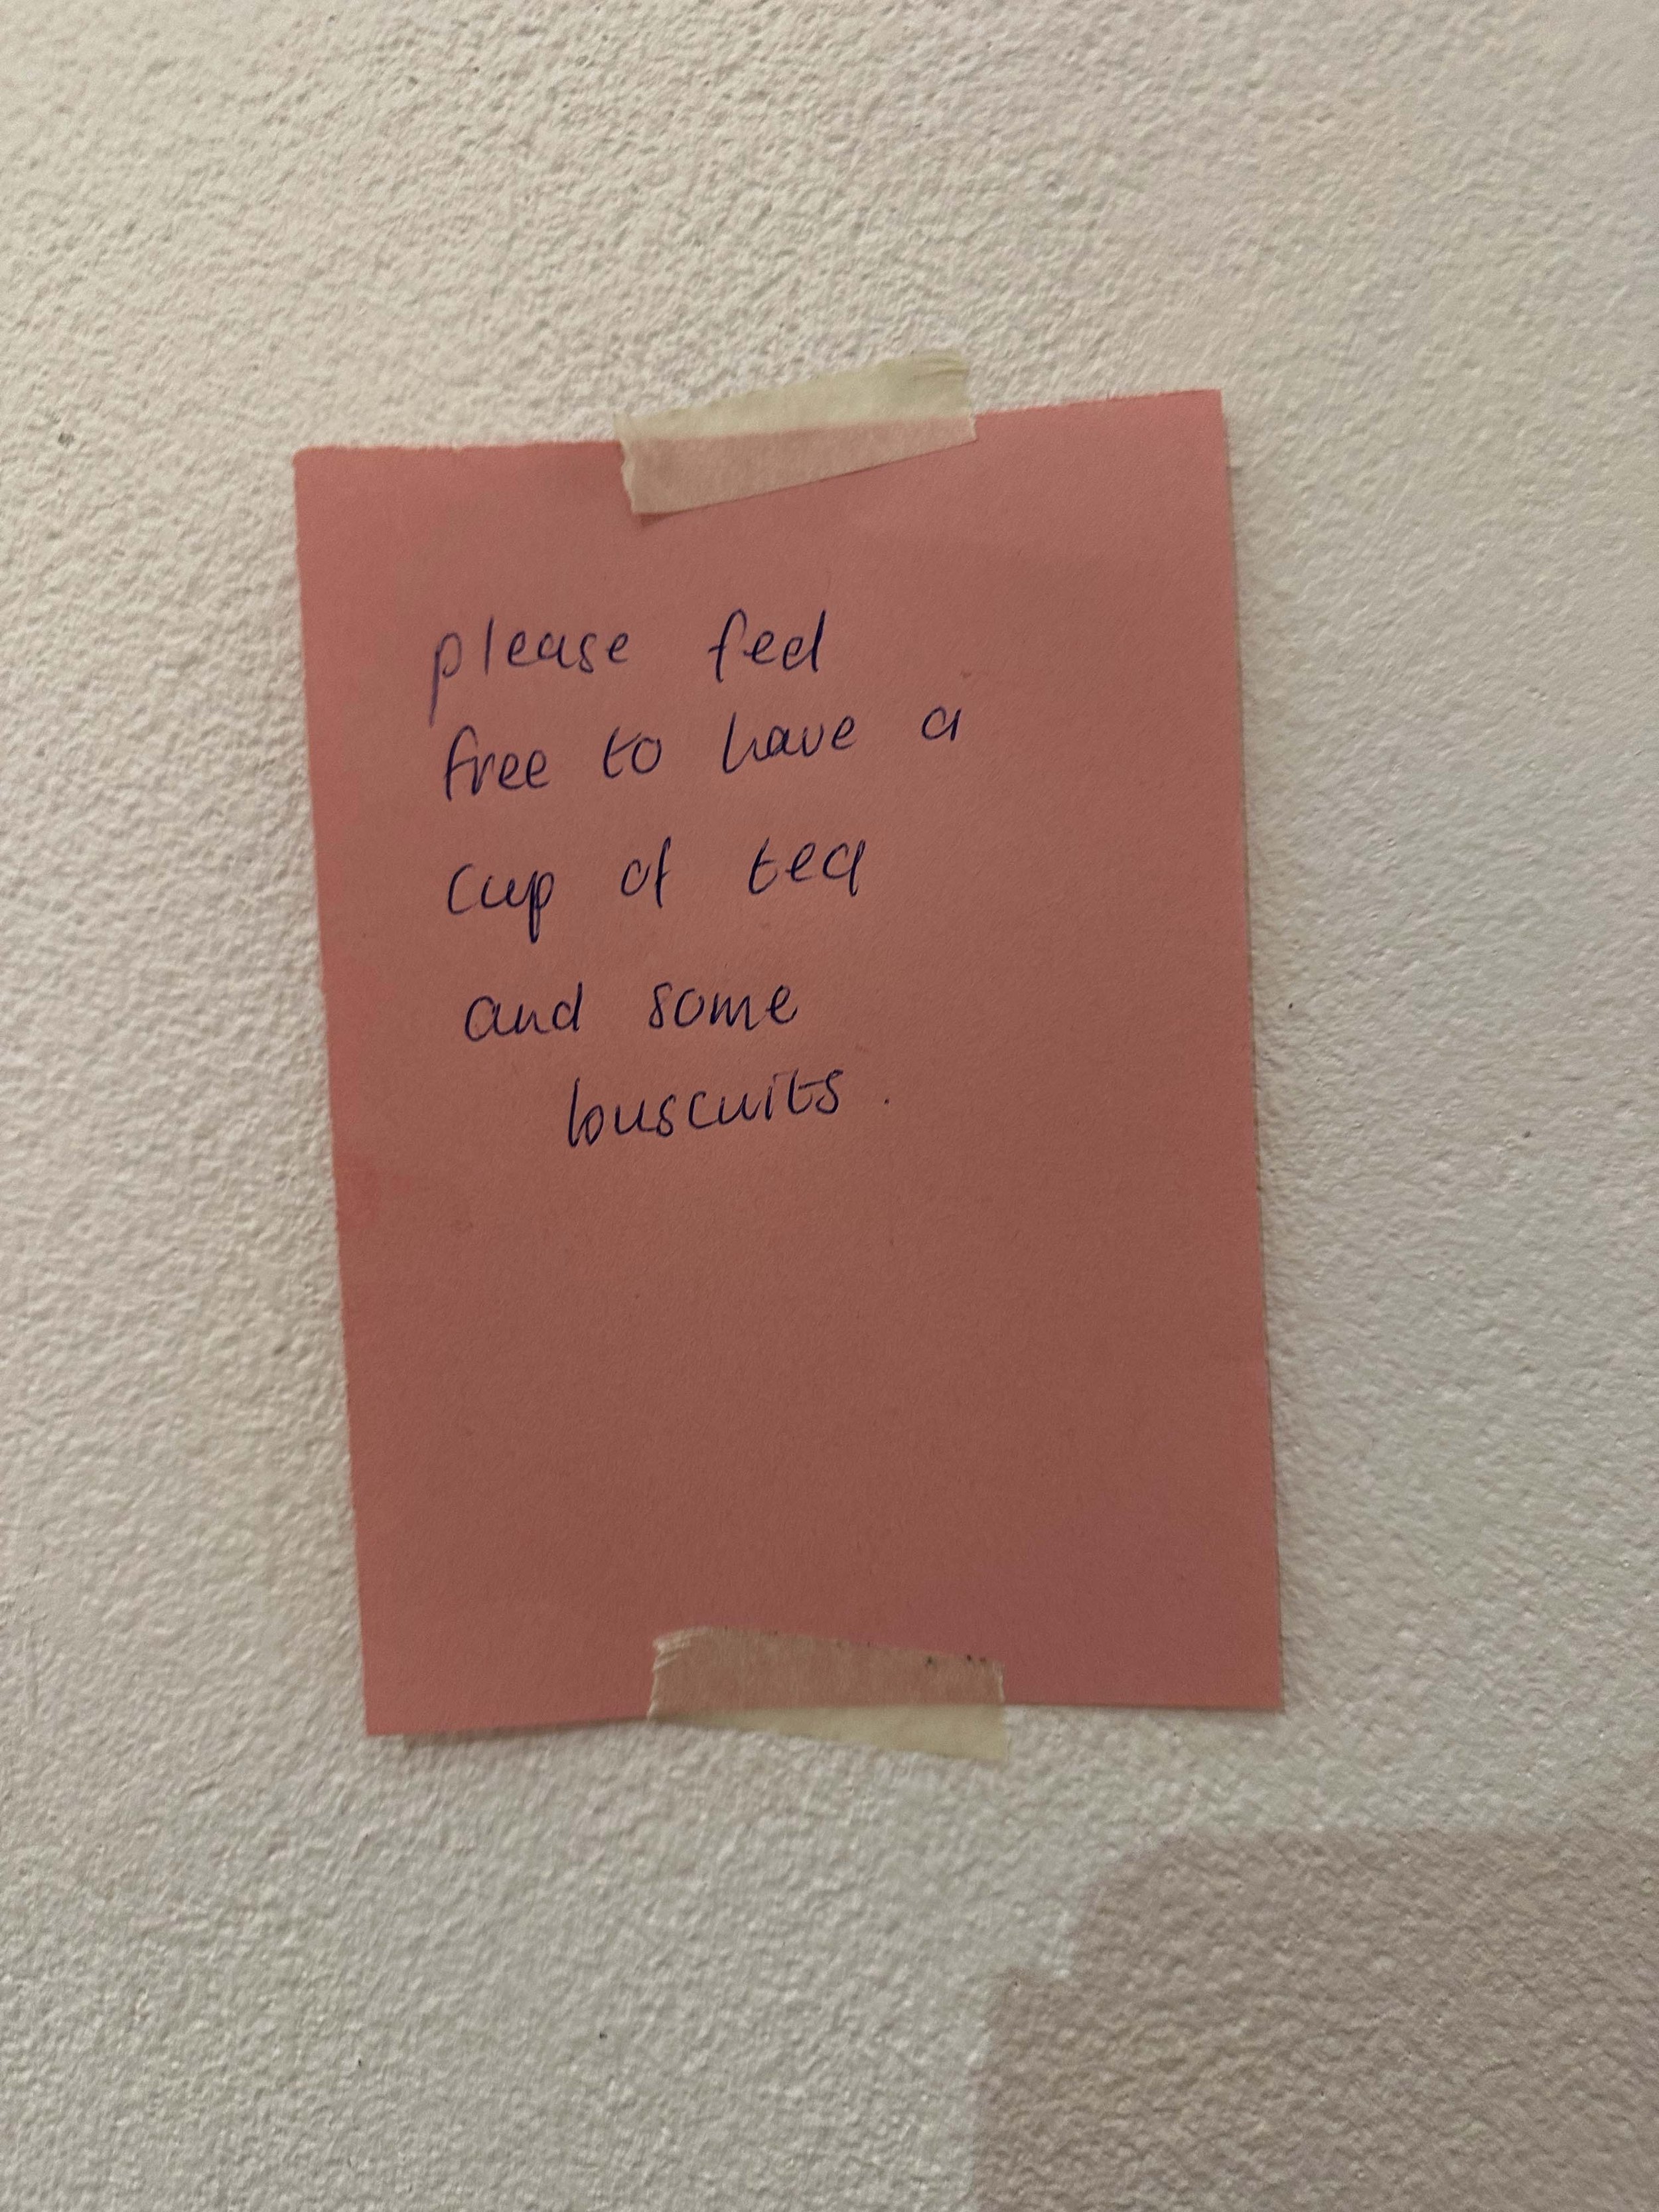 please feel
free to have a
cup of tea
and some
buscuits.